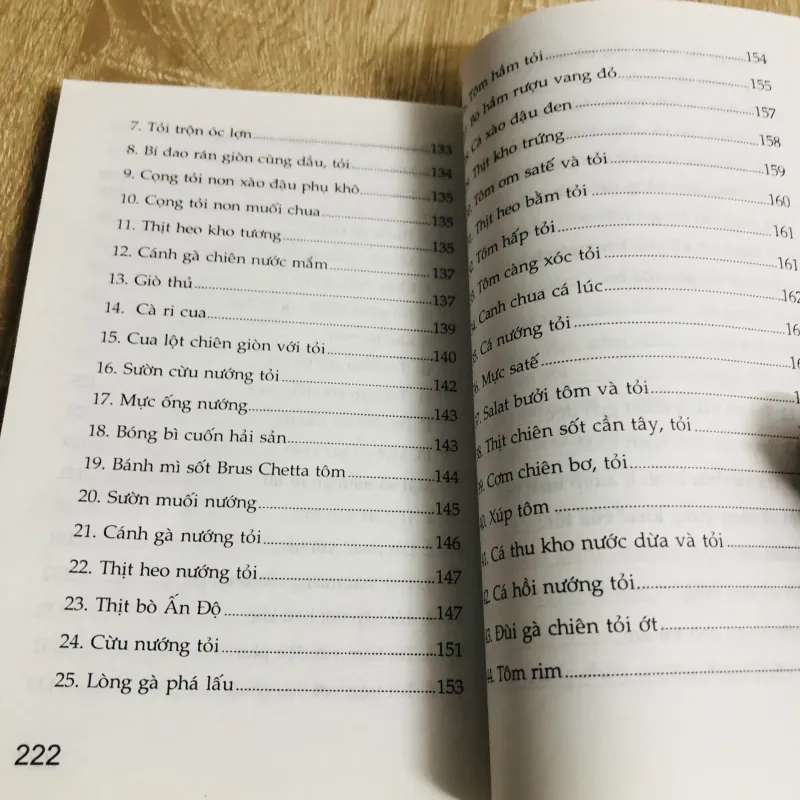 7. Tỏi trộn óc lợn 133
8. Bí đao rán giòn cùng dầu, tỏi 134
9. Cọng tỏi non xào đậu phụ khô 135
10. Cọng tỏi non muối chua 135
11. Thịt heo kho tương 135
12. Cánh gà chiên nước mắm 137
13. Giò thủ 137
14. Cà ri cua 139
15. Cua lột chiên giòn với tỏi 140
16. Sườn cừu nướng tỏi 142
17. Mực ống nướng 143
18. Bóng bì cuốn hải sản 143
19. Bánh mì sốt Brus Chetta tôm 144
20. Sườn muối nướng 145
21. Cánh gà nướng tỏi 146
22. Thịt heo nướng tỏi 147
23. Thịt bò Ấn Độ 147
24. Cừu nướng tỏi 151
25. Lòng gà phá lấu 153
222
Tôm hầm tỏi 154
Bò hầm rượu vang đỏ 155
Cà xào đậu đen 157
Thịt kho trứng 158
Tôm om satế và tỏi 159
Thịt heo bằm tỏi 160
Tôm hấp tỏi 161
Tôm càng xóc tỏi 161
Canh chua cá lúc 162
Cá nướng tỏi
Mực satế
Salat bưởi tôm và tỏi
Thịt chiên sốt cần tây, tỏi
Cơm chiên bơ, tỏi
40. Xúp tôm
Cá thu kho nước dừa và tỏi
Cá hồi nướng tỏi
Đùi gà chiên tỏi ớt
Tôm rim